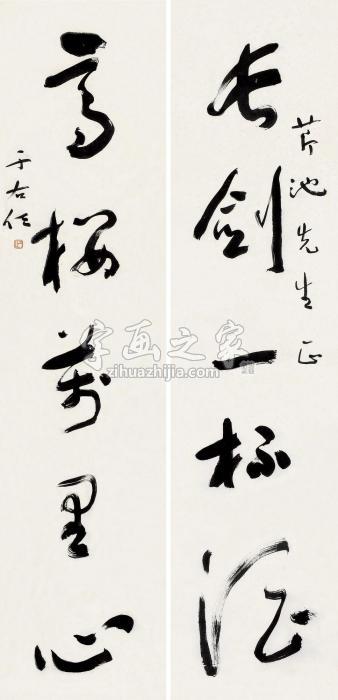 芹池先生正
长剑一杯酒
高楼万里心
于右任
字画之家
zihuazhijia.com